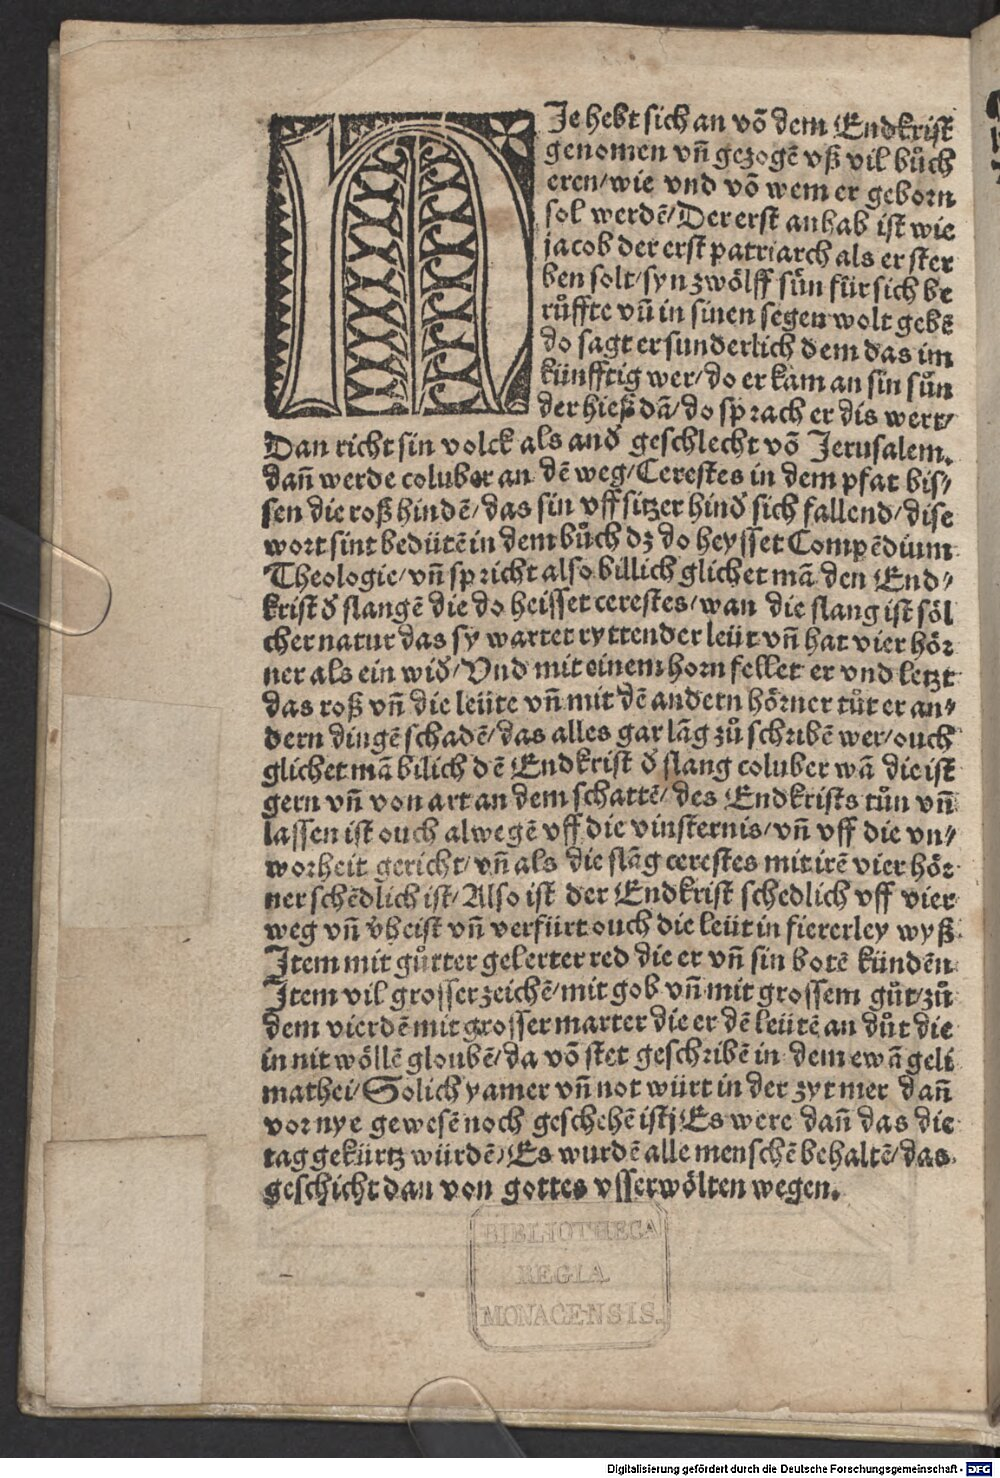 HJe hebt sich an võ dem Endkrist
genomen vñ gezogẽ vß vil bůch
eren/wie vnd võ wem er geborn
sol werdẽ/Der erst anhab ist wie
jacob der erst patriarch als er ster
ben solt/syn zwölff sün für sich be
růffte vñ in sinen segen wolt gebẽ
do sagt er sunderlich dem das im
künfftig wer/do er kam an sin sůn
der hieß dã/do sprach er dis wert/
Dan richt sin volck als and̄ geschlecht võ Jerusalem.
dañ werde coluber an dẽ weg/Cerestes in dem pfat bis⸗
sen die roß hindẽ/das sin vffsitzer hind̄ sich fallend/dise
wort sint bedütẽ in dem bůch dz do heysset Compẽdium
Theologie/vñ spricht also billich glichet mã den End⸗
krist d̄ slangẽ die do heisset cerestes/wan die slang ist söl
cher natur das sy wartet ryttender leüt vñ hat vier hör
ner als ein wid̄/Vnd mit einem horn fellet er vnd letzt
das roß vñ die leüte vñ mit dẽ andern hörner tůt er an⸗
dern dingẽ schadẽ/das alles gar lãg zů schribẽ wer/ouch
glichet mã bilich dẽ Endkrist d̄ slang coluber wã die ist
gern vñ von art an dem schattẽ/des Endkrists tůn vñ
lassen ist ouch alwegẽ vff die vinsternis/vñ vff die vn⸗
worheit gericht/vñ als die slãg cerestes mit irẽ vier hör
ner schẽdlich ist/Also ist der Endkrist schedlich vff vier
weg vñ v̄heist vñ verfürt ouch die leüt in fiererley wyß
Jtem mit gůrter gelerter red die er vñ sin botẽ kündẽn
Jtem vil grosser zeichẽ/mit gob vñ mit grossem gůt/zů
dem vierdẽ mit grosser marter die er dẽ leütẽ an důt die
in nit wöllẽ gloubẽ/da võ stet geschribẽ in dem ewãgeli
mathei/Solich yamer vñ not würt in der zyt mer dañ
vor nye gewesẽ noch geschehẽ istj Es were dañ das die
tag gekürtz würdẽ/Es wurdẽ alle menschẽ behaltẽ/das
geschicht dan von gottes vsserwölten wegen.
BIBLIOTHECA
REGIA
MONACENSIS.
Digitalisierung gefördert durch die Deutsche Forschungsgemeinschaft - DFG